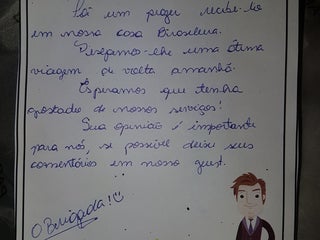 Foi um prazer recebê-lo
em nossa casa Brasileira.
Desejamos-lhe uma ótima
viagem de volta amanhã.
Esperamos que tenha
gostado de nossos serviços!
Sua opinião é importante
para nós, se possível deixe seus
comentários em nosso guest.
Obrigada!